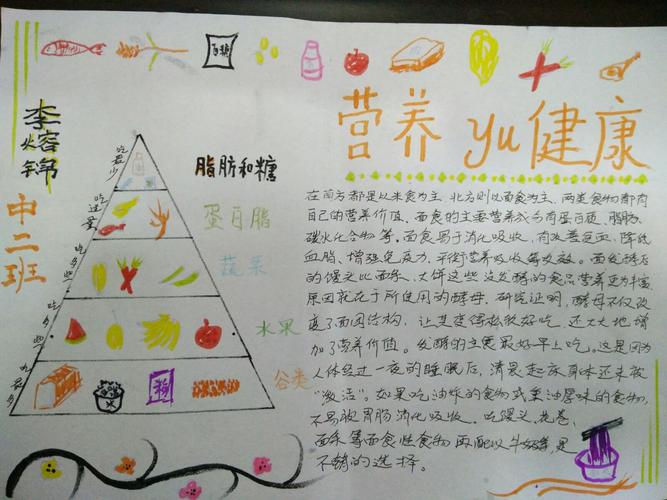 白糖
营养 yu 健康
李熔锦
中二班
吃最少
脂肪和糖
吃适量
蛋白脂
吃多些
蔬菜
吃多些
水果
吃最多
谷类
米
在南方都是以米食为主，北方则以面食为主，两类食物都有
自己的营养价值。面食的主要营养成分有蛋白质、脂肪、
碳水化合物等。面食易于消化吸收，有改善贫血、降低
血脂、增强免疫力、平衡营养吸收等功效。面发酵后
的馒头比面条、大饼这些没发酵的食品营养更为丰富
原因就在于所使用的酵母。研究证明，酵母不仅改
变了面团结构，让其变得松软好吃，还大大地增
加了营养价值。发酵的主食最好早上吃。这是因为
人体经过一夜的睡眠后，清晨起床身体还未被
“激活”。如果吃油炸的食物或重油厚味的食物，
不易被胃肠消化吸收。吃馒头、花卷、
面条等面食性食物再配以牛奶等是
不错的选择。